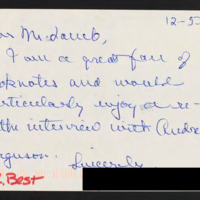 12-5
Mr. Lamb,
I am a great fan of
oknotes and would
articularly enjoy a re-
the interview with (Andre
rguson.
Sincerely
Best